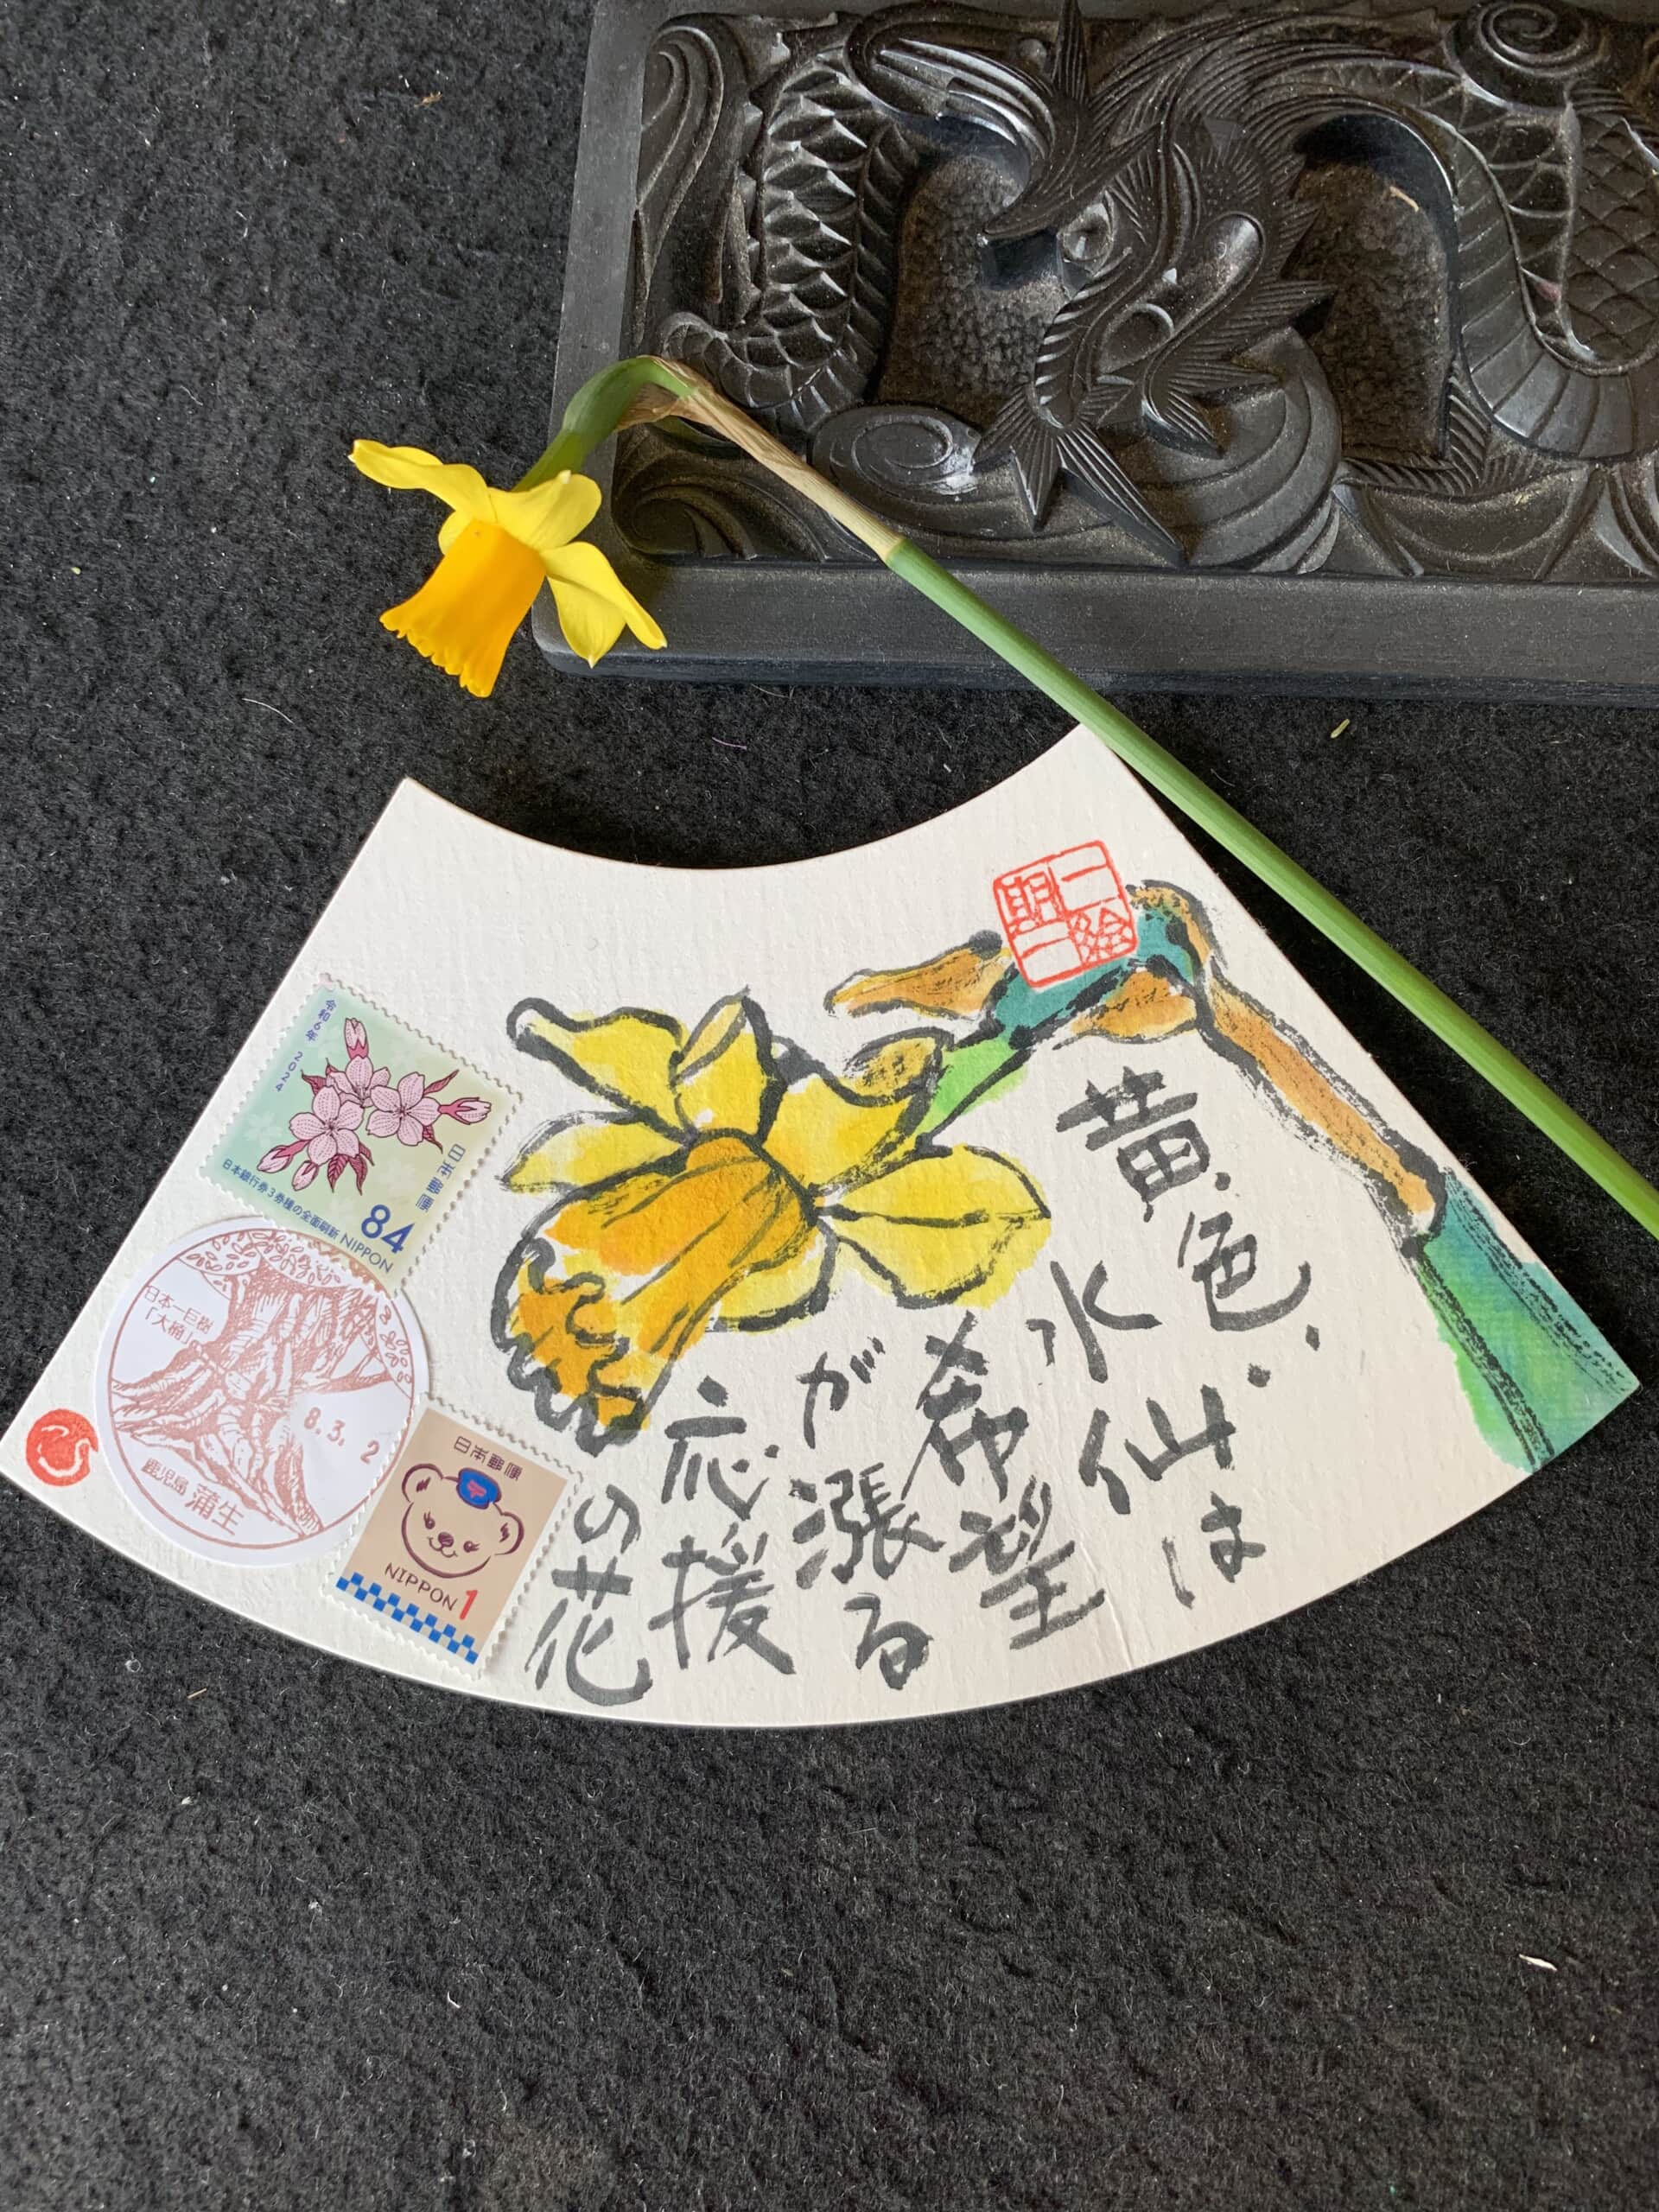 黄色い
水仙は
希望
が漲る
応援
の花
一絵
期一
令和6年 2024
日本郵便
84
日本銀行券3券種の全面刷新 NIPPON
日本一巨樹
「大楠」
8.3.2
鹿児島 蒲生
日本郵便
NIPPON 1